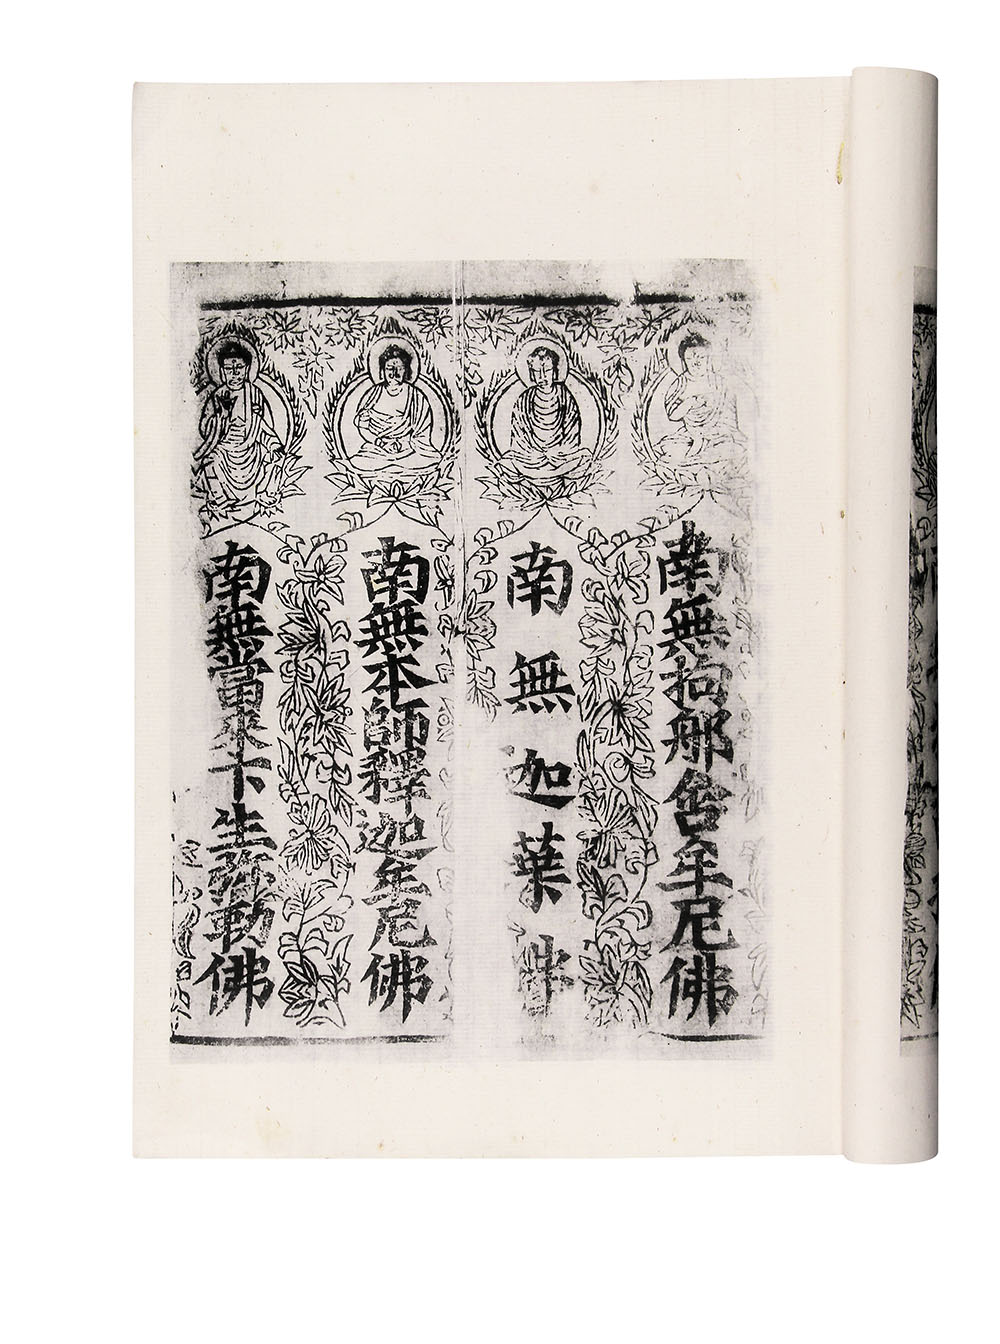 南無拘那舍牟尼佛
南無迦葉佛
南無本師釋迦牟尼佛
南無當來下生弥勒佛